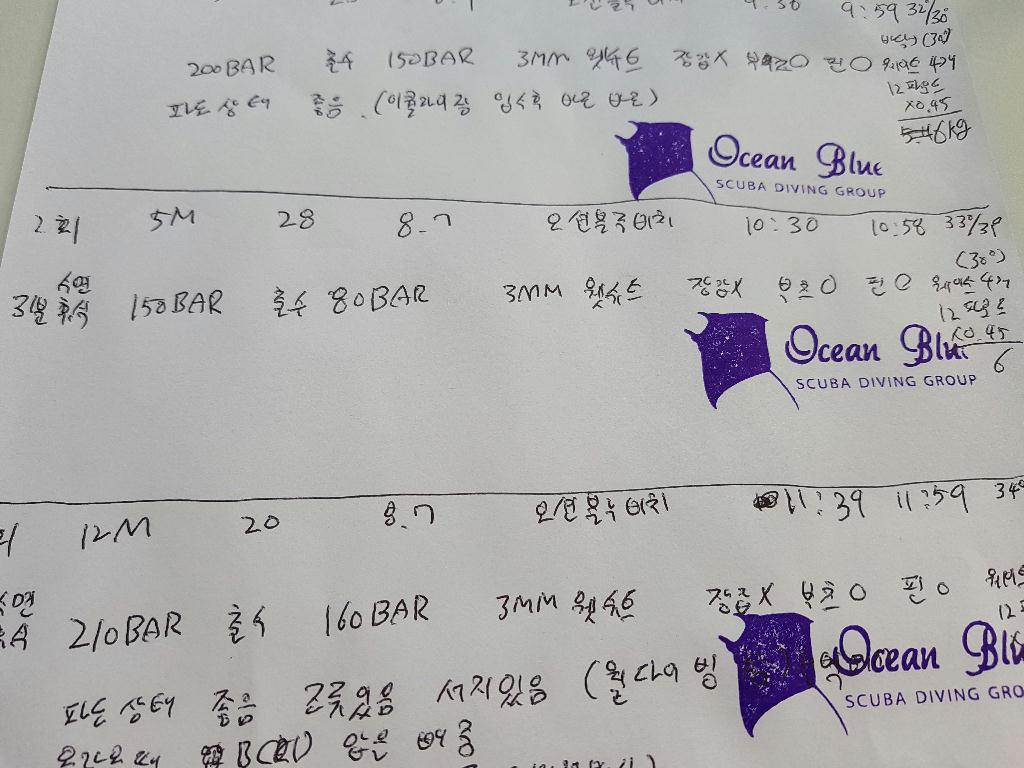 9:30 9:59 32°/30
(30°)
200BAR 출수 150BAR 3MM 웻슈트 장갑X 부츠O 핀O 웨이트 4개
12파운드
파도 상태 좋음 . (이퀄라이징 입수후 바로 바로) X0.45
6kg
Ocean Blue
SCUBA DIVING GROUP
2회 5M 28 8.7 오션블루비치 10:30 10:58 33°/39
(30°)
수면
31분 휴식 150BAR 출수 80BAR 3MM 웻슈트 장갑X 부츠O 핀O 웨이트 4개
12파운드
X0.45
6
Ocean Blu
SCUBA DIVING GROUP
회 12M 20 8.7 오션블루비치 11:39 11:59 34°
수면
휴식 210BAR 출수 160BAR 3MM 웻슈트 장갑X 부츠O 핀O 웨이트
12
파도 상태 좋음 조류있음 서지있음 (월 다이빙
Ocean Blu
SCUBA DIVING GRO